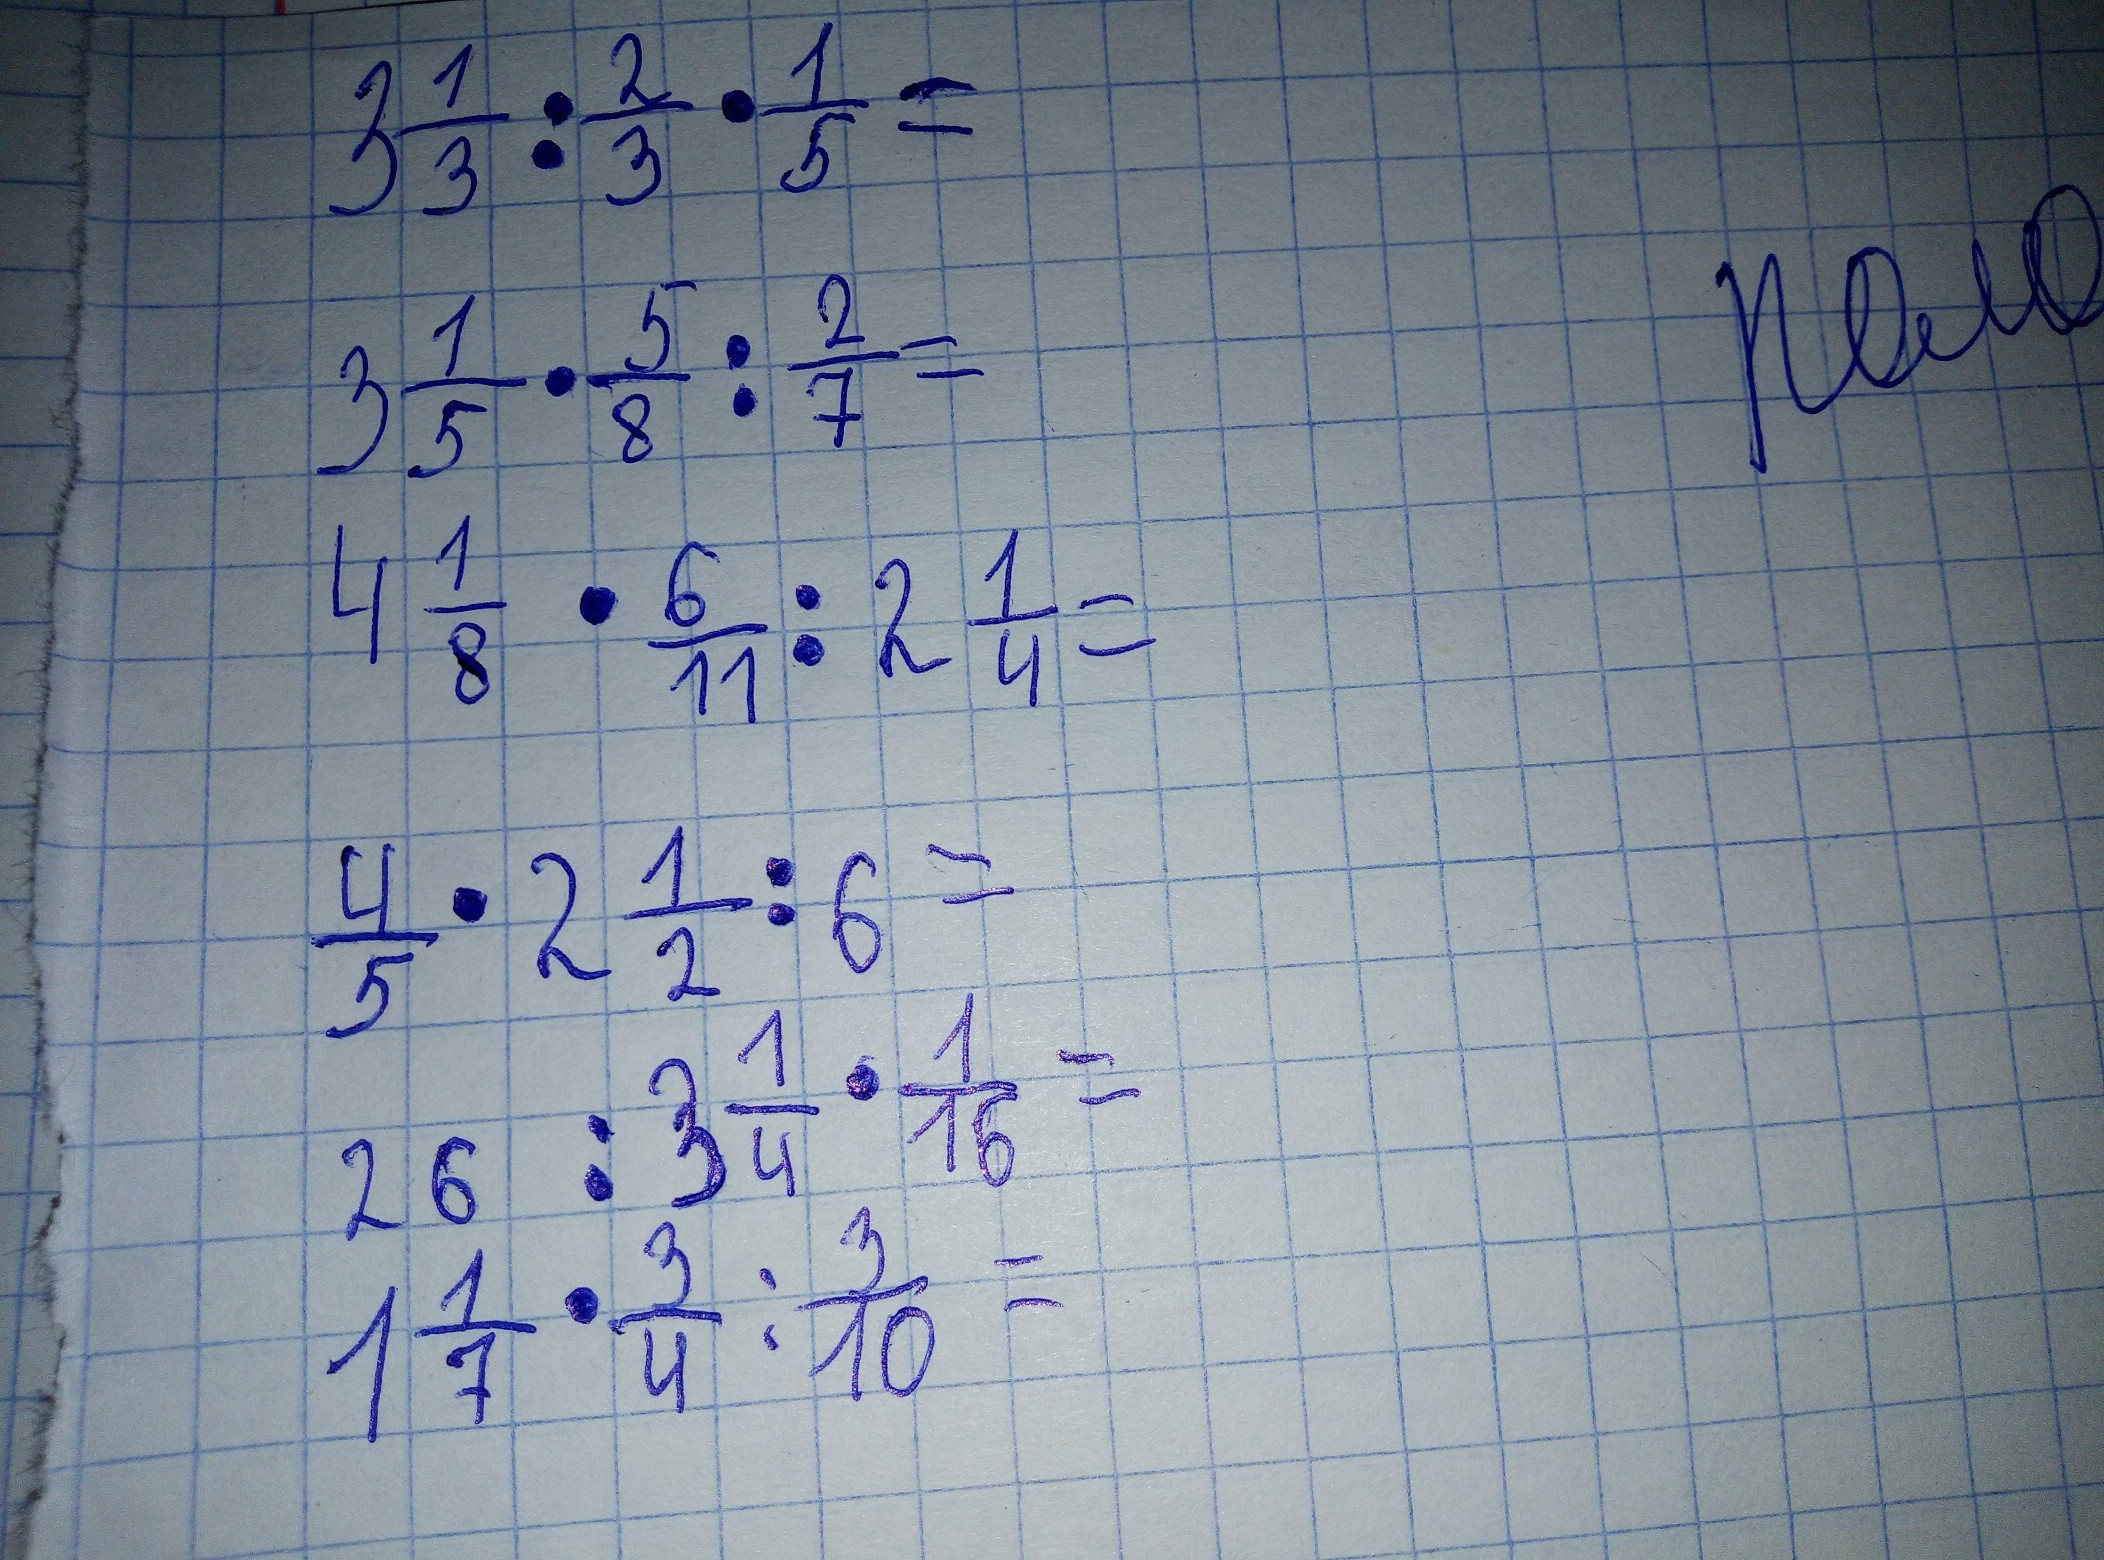 3 1/3 : 2/3 • 1/5 =
3 1/5 • 5/8 : 2/7 =
4 1/8 • 6/11 : 2 1/4 =
4/5 • 2 1/2 : 6 =
26 : 3 1/4 • 1/16 =
1 1/7 • 3/4 : 3/10 =